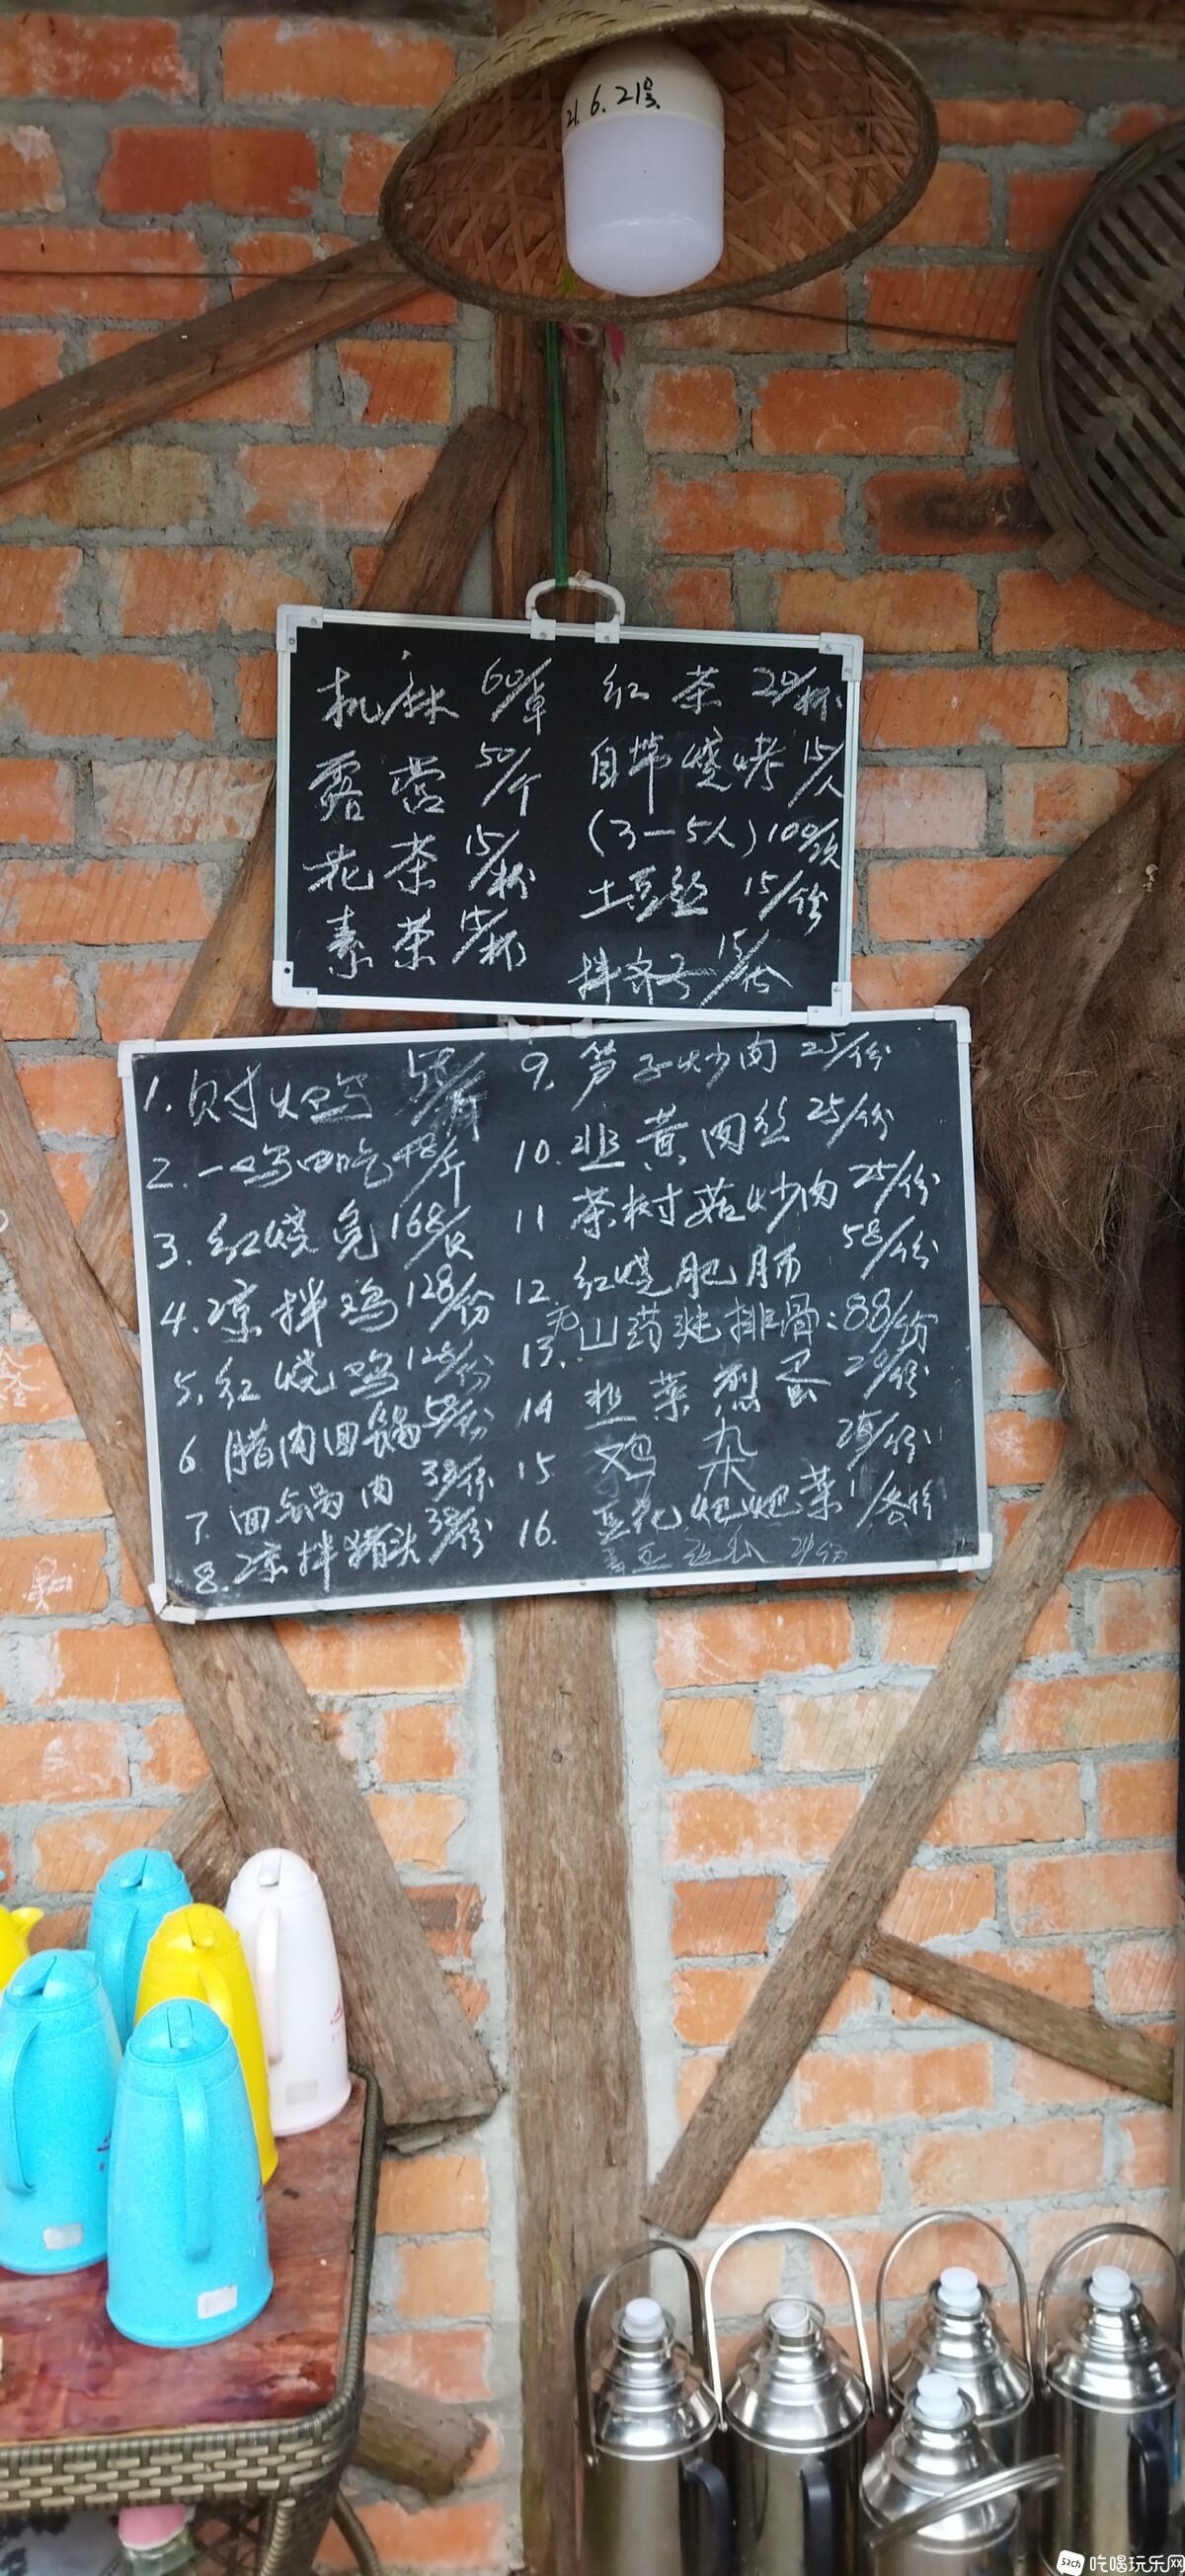 21.6.21号
机麻 60/桌
露营 50/个
花茶 15/杯
素茶 15/杯
红茶 20/杯
自带烧烤 15/人
(3-5人) 100/顿
土豆丝 15/份
拌齐子 15/份
1. 财火巴鸡
2. 一鸡四吃 48/斤
3. 红烧兔 168/只
4. 凉拌鸡 128/份
5. 红烧鸡 128/份
6 腊肉回锅 58/份
7. 回锅肉 38/份
8. 凉拌猪头 38/份
9. 笋子炒肉 25/份
10. 韭黄肉丝 25/份
11 茶树菇炒肉 25/份
12. 红烧肥肠 58/份
13. 山药炖排骨: 88/份
14 韭菜煎蛋 20/份
15 鸡杂 25/份
16. 豆花粑粑菜
52ch 吃喝玩乐网